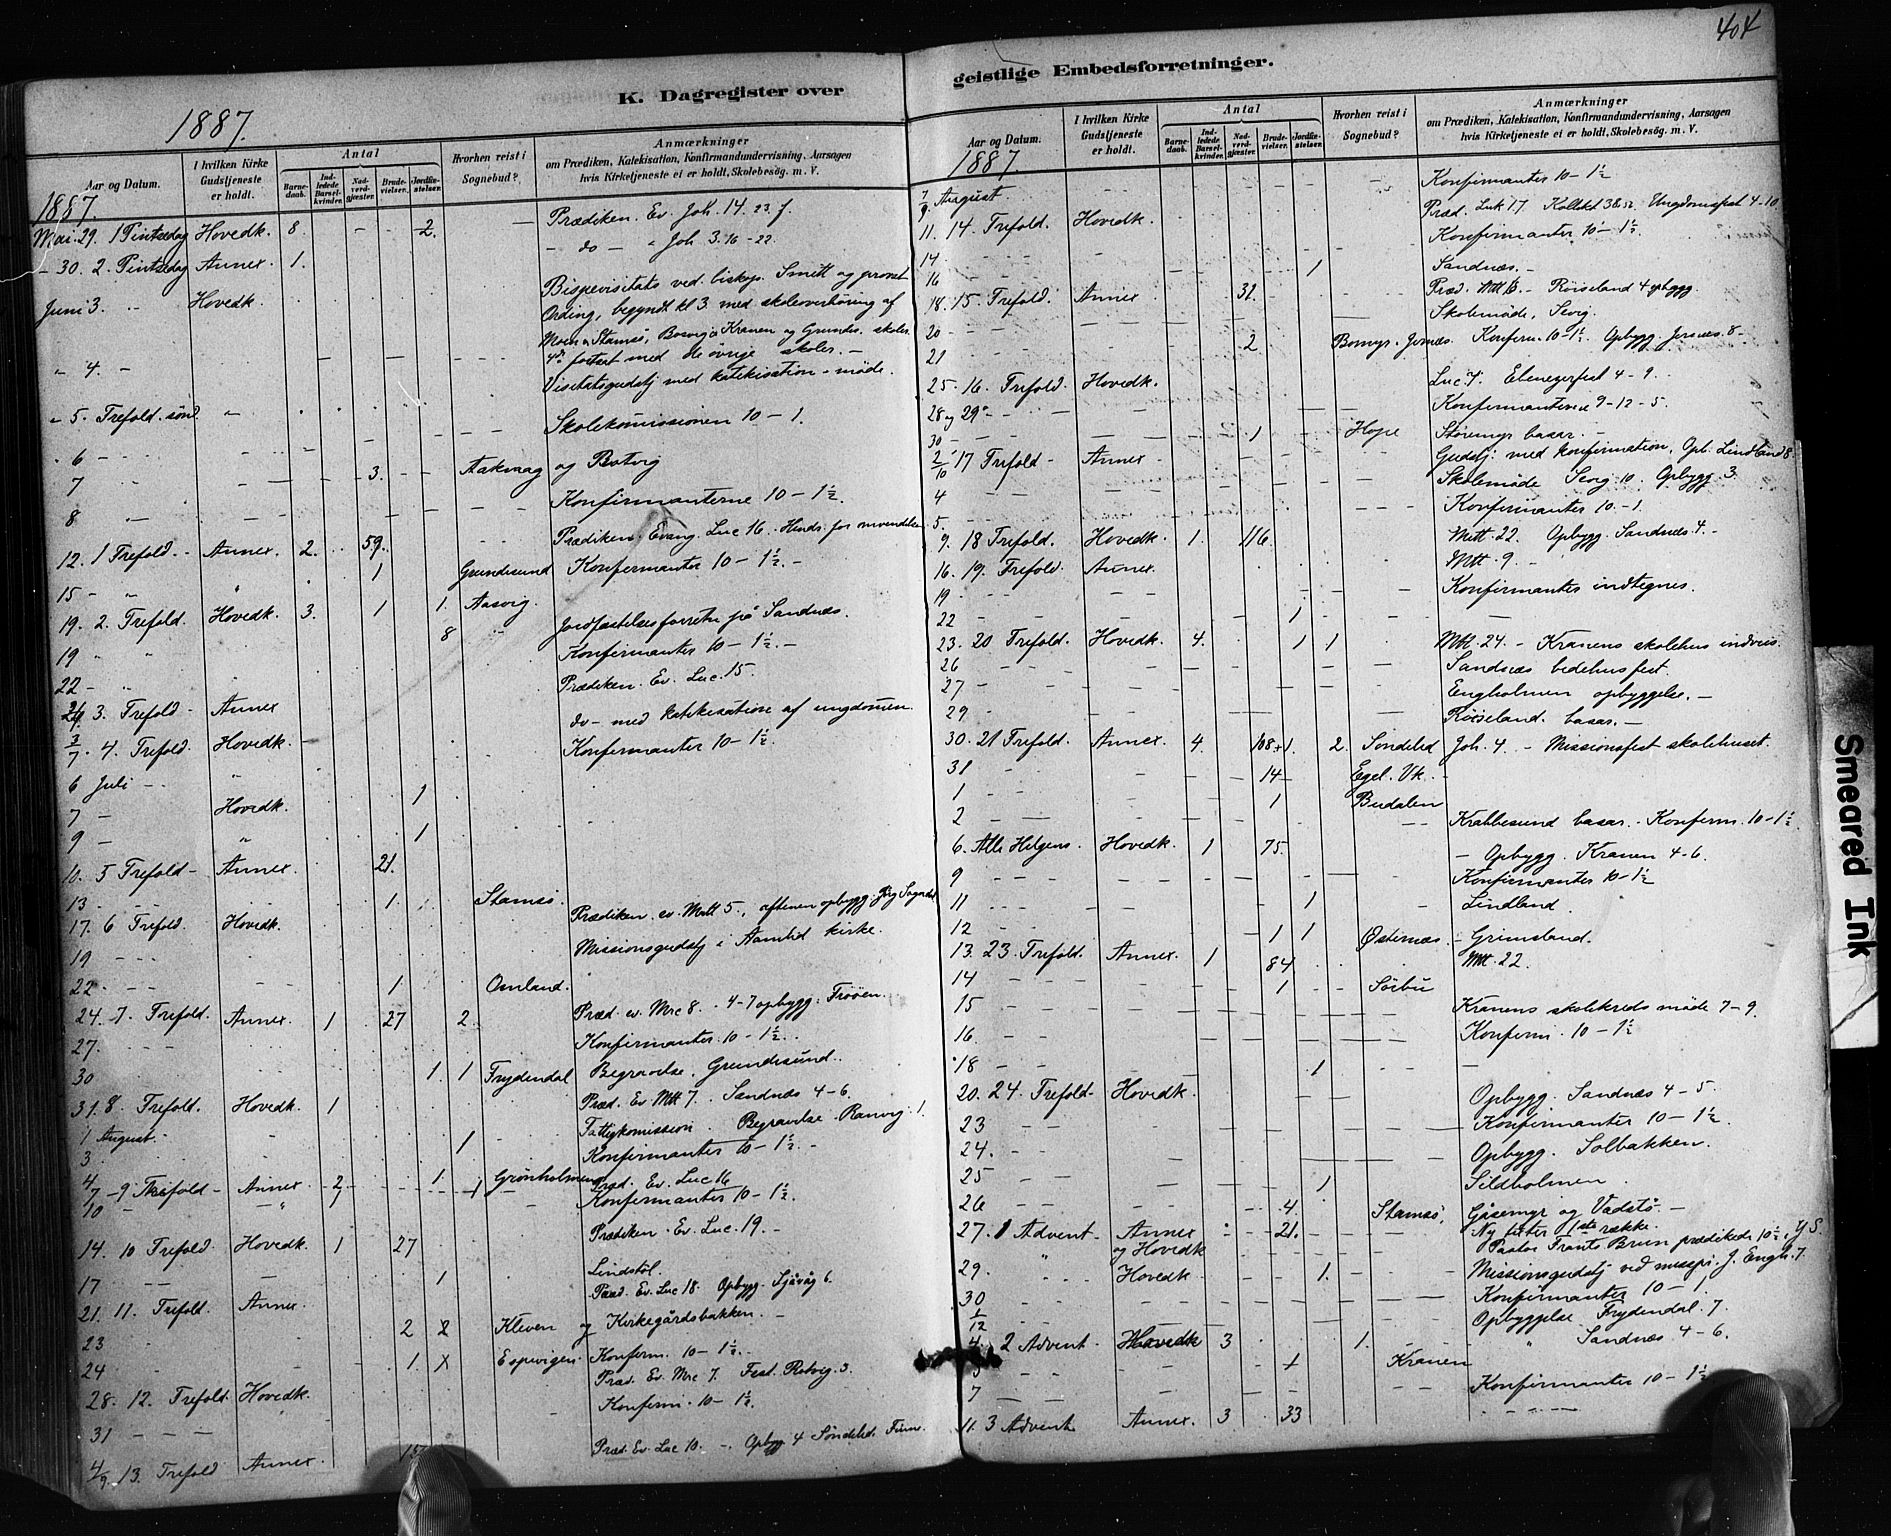 404
K. Dagregister over
1887.
Aar og Datum.
I hvilken Kirke Gudstjeneste er holdt.
Antal
Barnedaab.
Indledede Barselkvinder.
Nadverdgjæster.
Brudevielser.
Jordfæstelser.
Hvorhen reist i Sognebud?
Anmærkninger
om Prædiken, Katekisation, Konfirmandundervisning, Aarsagen
hvis Kirketjeneste ei er holdt, Skolebesög. m. V.
1887.
Mai 29. 1 Pintsedag Hovedk. 8 2. Prædiken. Ev. Joh. 14. 23 f.
- 30. 2. Pintsedag Annex. 1. - do - " Joh. 3. 16-22.
Juni 3. Hovedk. Bispevisitats ved biskop. Smitt og provst
Ording, begyndt kl 3. med skoleoverhöring af
Moen, Stamsö, Bosvig, Kranen og Grundes. skoler.
" 4. - 4de fortsat med de övrige skoler. -
Visitatsgudstj med katekisation - möde.
" 5. Trefold. sönd. "
" 6 - Skolekomissionen 10 - 1.
7 3. Aakvaag og Botvig
8 Konfirmanterne 10 - 1½.
12. 1 Trefold - Annex. 2. 59. Prædiken. Evang. Luc 16. Hinds. for omvendelse
15 - " 1 Grundesund Konfirmanter 10 - 1½. -
19. 2. Trefold. Hovedk. 3. 1 1. Aasvig.
19 8 Jordfæstelsesforretn på Sandnæs.
22 - " Konfirmanter 10 - 1½. -
26. 3. Trefold - Annex Prædiken. Ev. Luc. 15.
3/7. 4. Trefold. Hovedk. do - med katekisation af ungdommen.
6 Juli - Konfirmanter 10 - 1½.
7 - Hovedk. 1
9 - " 1
10. 5 Trefold - Annex. 21.
13 - 1. Stamsö.
17. 6 Trefold. Hovedk. Prædiken. ev. Matt 5., aftenen opbygg.
19 - Missionsgudstj i Aamlid kirke.
22 - 1 Omland.
24. 7. Trefold. Annex. 1 27 2. Præd. ev. Mrc 8. 4-7 opbygg. Frøöen.
27. Konfirmanter. 10 - 1½.
30 1. 1 Frydendal Begravelse. Grundesund.
31. 8. Trefold. Hovedk. 1 Præd. Ev Mtt 7. Sandnæs 4-6.
1 August. - Fattigkomission. Begravelse Ranvig. 1.
3. 1 Konfirmanter 10 - 1½. -
4 1 Grönholmen
7 - 9 Trefold - Annex. 2 1 Præd. Ev. Luc 16
10 - " Konfirmanter 10 - 1½.
14. 10 Trefold. Hovedk. 1 27 Prædiken. Ev. Luc. 19. -
17 - 1 Lindstöl.
21. 11. Trefold. Annex. Præd. Ev. Luc 18. Opbygg. Sjåvåg 6.
23 2 Kleven og Kirkegårdsbakken. -
24 1. Espevigen. Konfirm. 10 - 1½. -
28. 12. Trefold. Hovedk. Præd. Ev. Mrc 7. Fest 3.
31 - Konfirm. 10 - 1½.
4/9. 13. Trefold Annex. Præd. Ev. Luc 10. -, Opbygg 4 Söndeled.
geistlige Embedsforretninger.
Aar og Datum.
I hvilken Kirke Gudstjeneste er holdt.
Antal
Barnedaab.
Indledede Barselkvinder.
Nadverdgjæster.
Brudevielser.
Jordfæstelser.
Hvorhen reist i Sognebud?
Anmærkninger
om Prædiken, Katekisation, Konfirmandundervisning, Aarsagen
hvis Kirketjeneste ei er holdt, Skolebesög. m. V.
1887.
7/9. August Konfirmanter 10 - 1½
11. 14 Trefold. Hovedk. Præd. Luk 17. Kollekt 38.52. Ungdomsfest 4-10
14 - Konfirmanter 10 - 1½
16 1 Sandnæs. -
18. 15. Trefold. Annex 31. Præd. Mtt 6. - Röiseland 4 opbygg.
20 - Skolemöde, Sevig.
21 2 Bomyr. Jernæs. Konfirm. 10-1½. Opbygg. Jernæs. 8 -
25. 16. Trefold. Hovedk. Luc 7. Ebenezerfest 4-9.
28 og 29. - Konfirmanterne 9-12-5.
30 - 1 Hope Störemyr basar. -
2/10 17 Trefold - Annex. Gudstj. med konfirmation, Opb. Lindland 8.
4 - Skolemöde Sevig 10. Opbygg 3.
5. Konfirmanter 10-1.
9. 18 Trefold. Hovedk. 1. 116 Mtt. 22. Opbygg. Sandnæs 4. -
16. 19. Trefold. Annex. Mtt. 9. -
19 - Konfirmantes indtegnes.
22 - 1
23. 20 Trefold. Hovedk. 4. 1 1 Mtt. 24. - Kranens skolehus indvies.
26 Sandnæs bedehusfest.
27 - Engholmen opbyggelse. -
29 Röiseland. basar. -
30. 21 Trefold. Annex. 4. 108+1. 2. Söndeled Joh. 4. - Missionsfest skolehuset.
31 14 Egel. Vk. -
1 1 Budalen
2 Krabbesund basar. Konfirm. 10-1½
6. Alle Helgens. Hovedk. 1 75. - Opbygg. Kranen 4-6.
9 Konfirmanter 10-1½
11 1 Lindland.
12 1 1 Østernæs. - Grimsland.
13. 23. Trefold. Annex. 1 84 Mtt. 22.
14 1 Sörbu
15 Kranens skolekreds möde 7-9.
16 Konfirm. 10-1½
18 1
20. 24 Trefold. Hovedk. Opbygg. Sandnæs 4-5
23 Konfirmanter 10-1½.
24. Opbygg. Solbakken.
25 1 Sildholmen.
26 4. Stamsö, Gåsemyr og Vadstö. -
27. 1 Advent - Annex 21. Ny texter 1ste række.
og Hovedk Pastor Frants Bruun prædikede 10½.
29. Hovedk. 1. Missionsgudstj ved misspr. J. Engh. 7.
30 Konfirmanter 10-1.
1/12 Opbyggelse Frydendal. 7.
4. 2 Advent. Hovedk 3 1. " Sandnæs 4-6.
5 Kranen
7 Konfirmanter 10-1½
11. 3 Advent Annex. 3 33
Smeared Ink